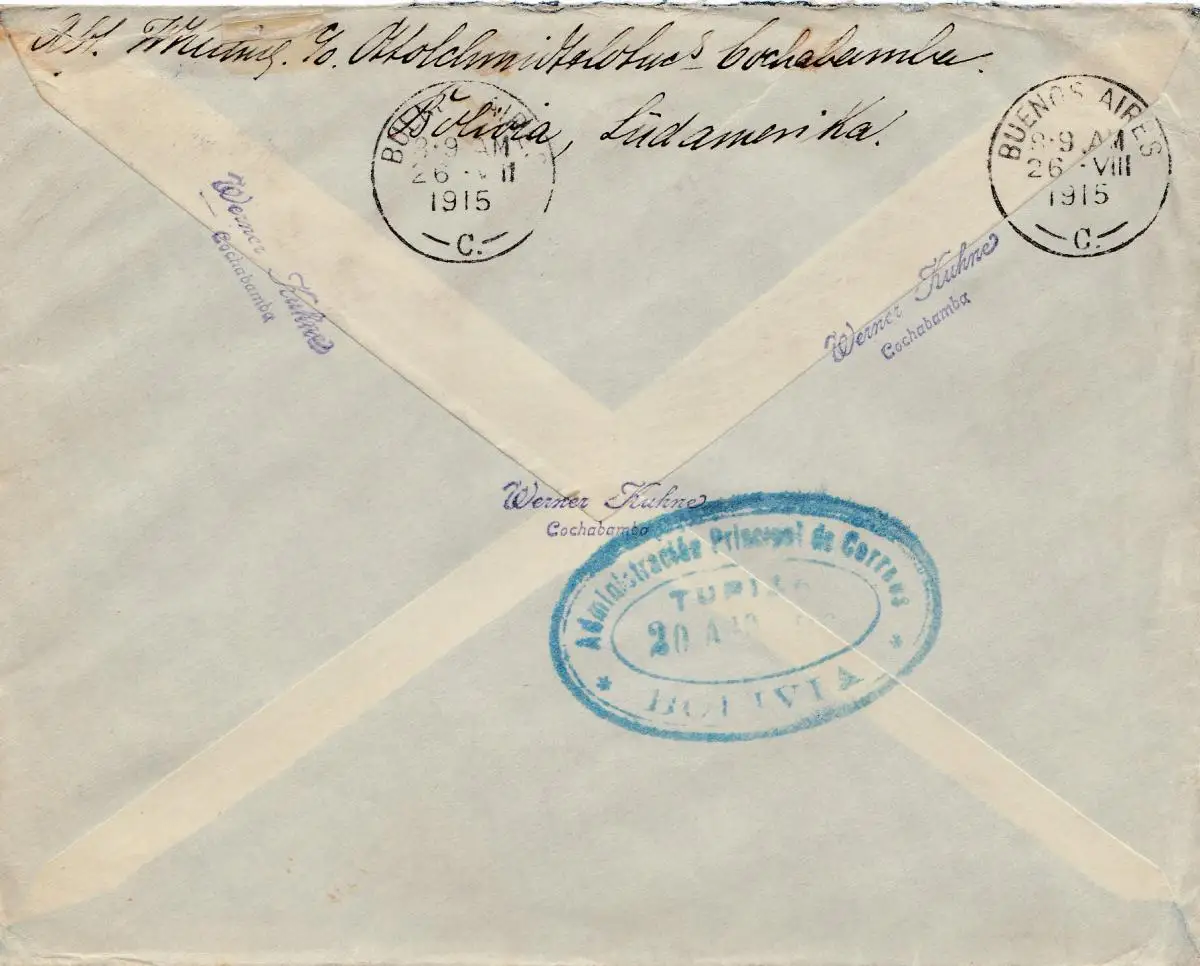 Abs. W. Kühne. c/o. Otto Schmidt Cochabamba.
Bolivia, Südamerika.
BUENOS AIRES
8·9 AM
26·VIII
1915
C.
BUENOS AIRES
8·9 AM
26·VIII
1915
C.
Werner Kuhne
Cochabamba
Werner Kuhne
Cochabamba
Werner Kuhne
Cochabamba
Administración Principal de Correos
TUPIZA
20
BOLIVIA